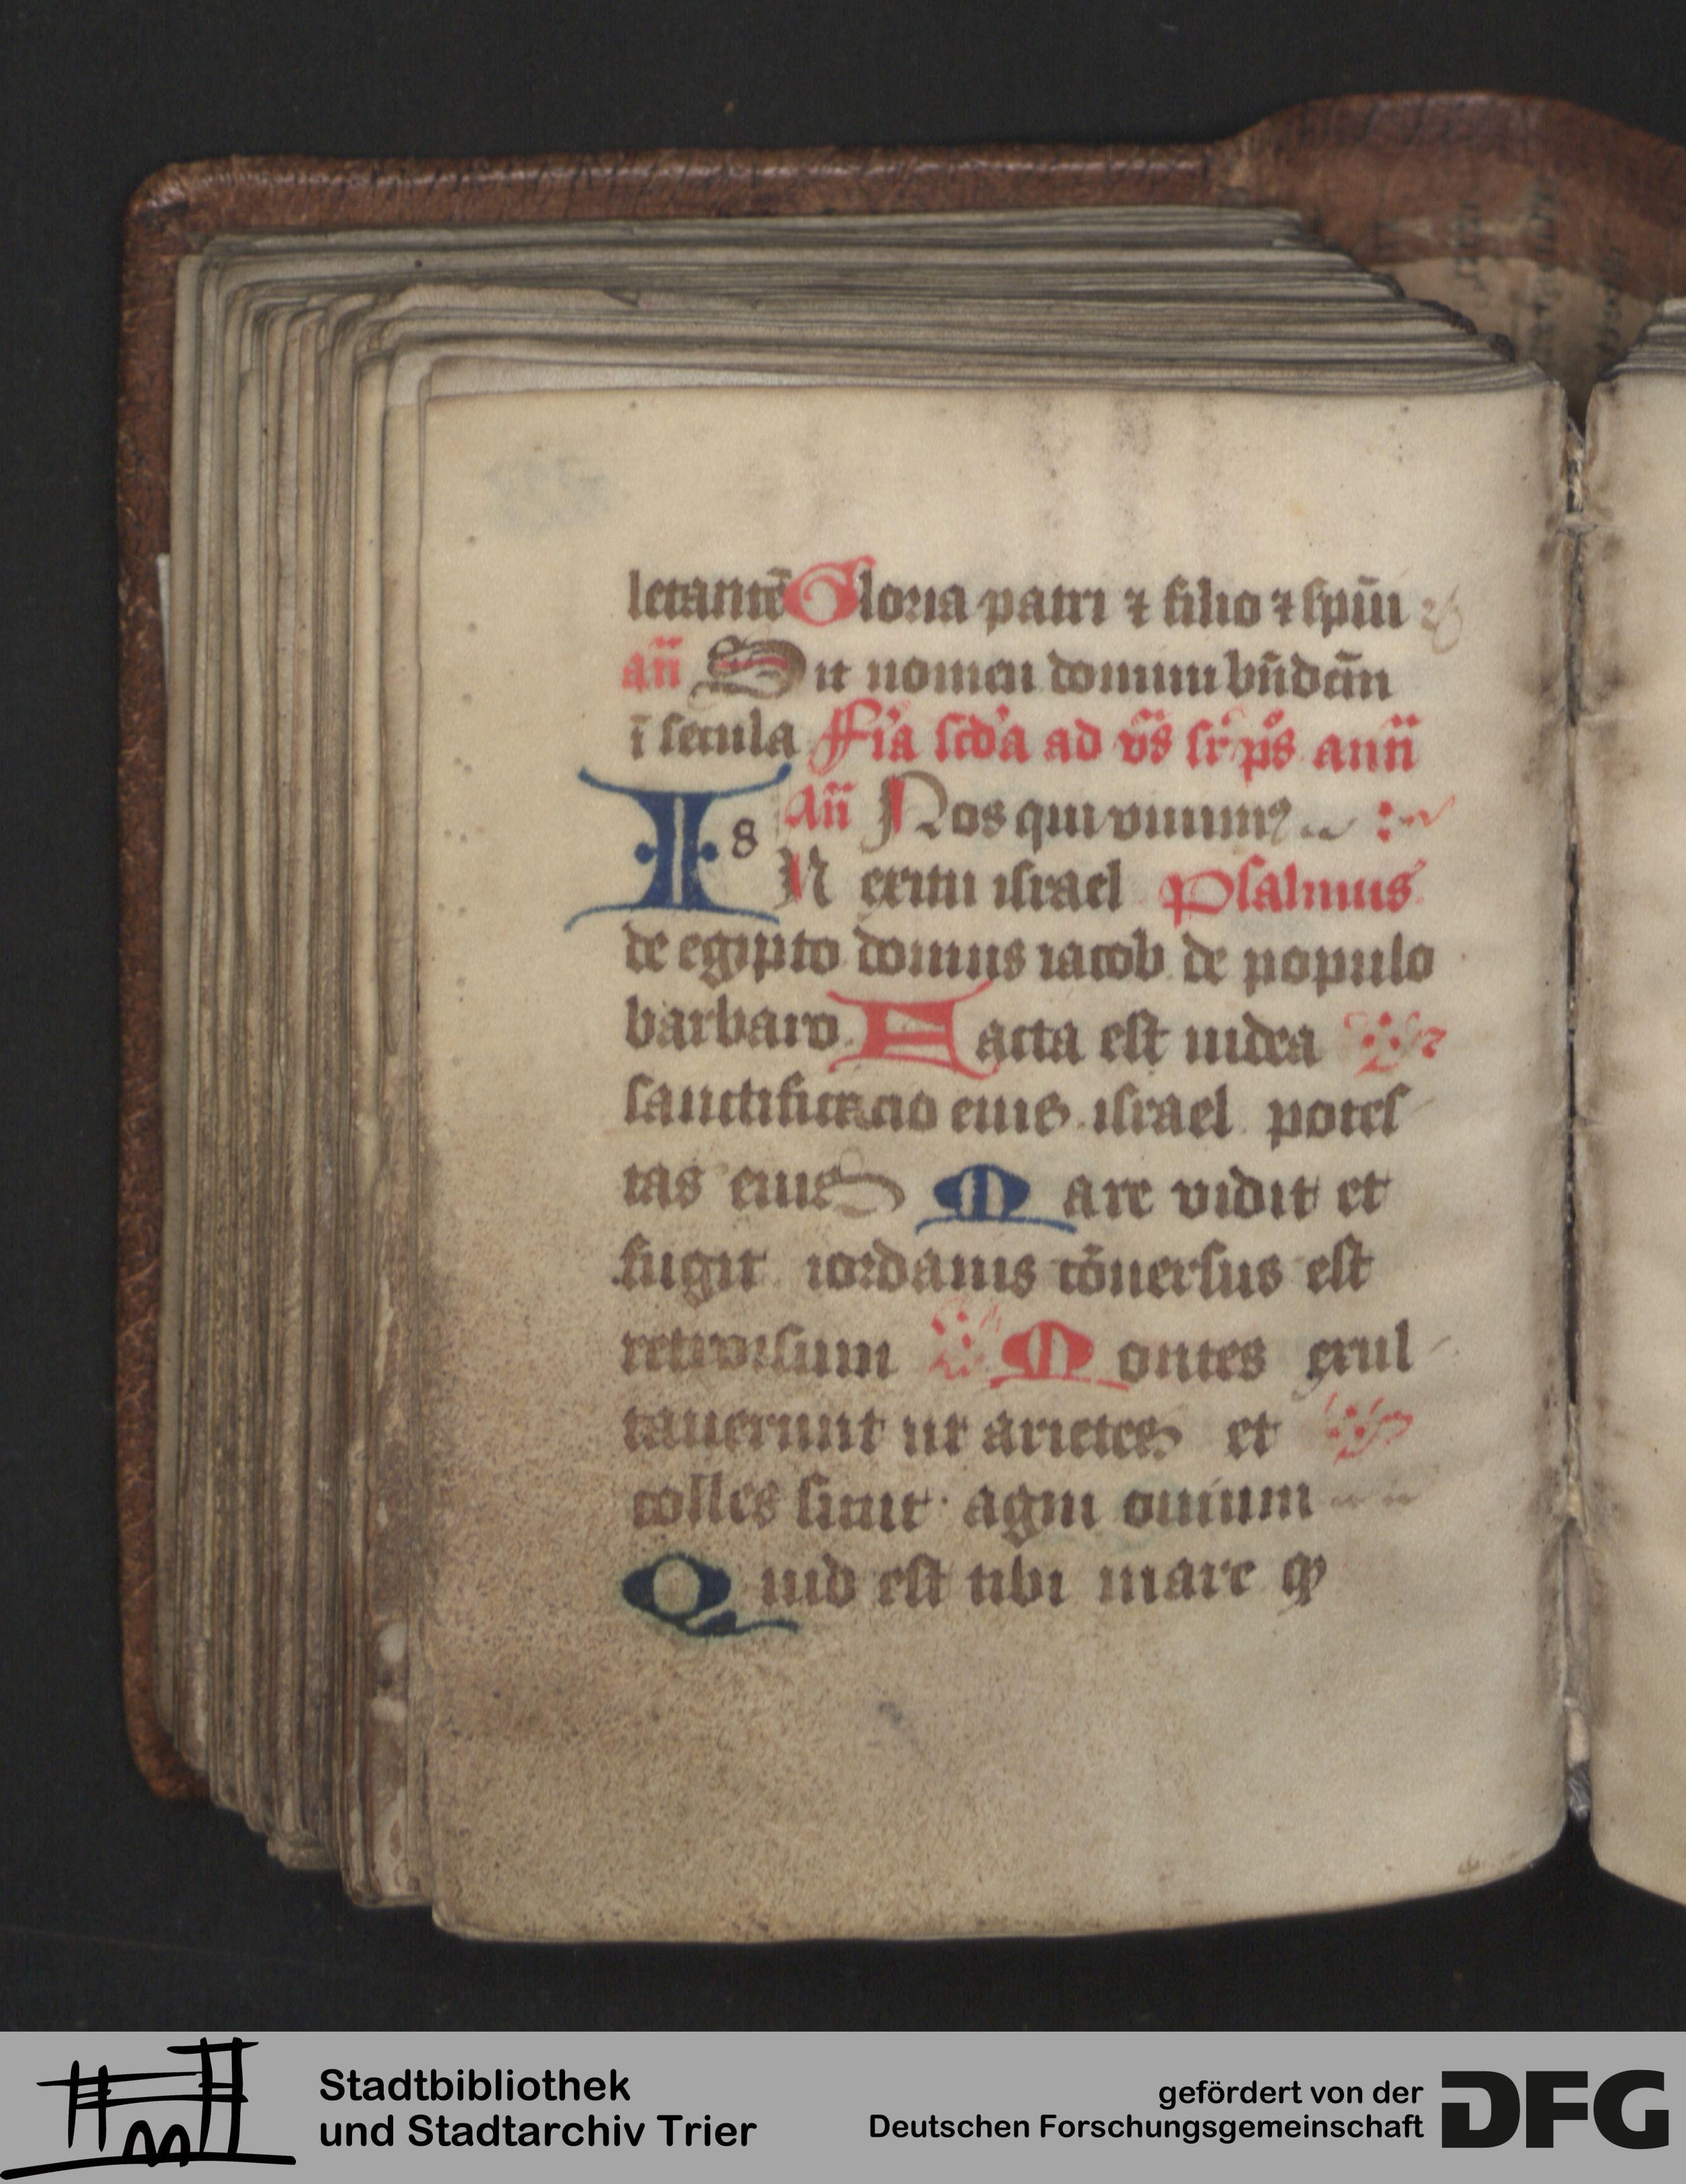 letantē Gloria patri ⁊ filio ⁊ spūi
añ Sit nomen domini bn̄dcm̄
ī secula Fr̄a scd̓a ad vs̄ sr̄ ps̄ ann̄
añ Nos qui viuimꝰ
I N exitu israel Psalmus
de egipto domus iacob de populo
barbaro Facta est iudea
sanctificacio eius israel potes
tas eius Mare vidit et
fugit iordanis cōuersus est
retrorsum Montes exul
tauerunt ut arietes et
colles sicut agni ouium
Quid est tibi mare ꝙ
Stadtbibliothek
und Stadtarchiv Trier
gefördert von der
Deutschen Forschungsgemeinschaft
DFG